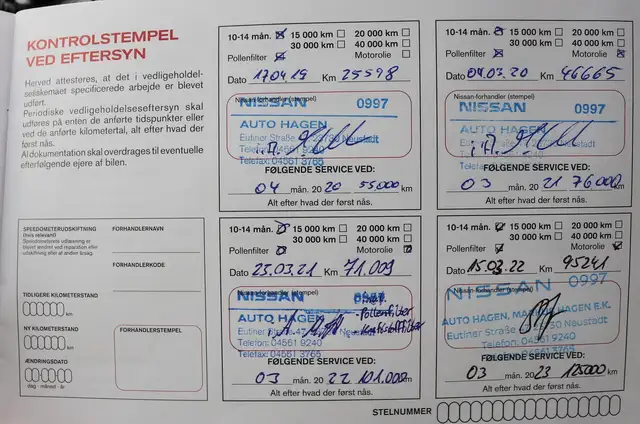 KONTROLSTEMPEL
VED EFTERSYN
Herved attesteres, at det i vedligeholdel-
sesskemaet specificerede arbejde er blevet
udført.
Periodiske vedligeholdelseseftersyn skal
udføres på enten de anførte tidspunkter eller
ved de anførte kilometertal, alt efter hvad der
først nås.
Al dokumentation skal overdrages til eventuelle
efterfølgende ejere af bilen.
SPEEDOMETERUDSKIFTNING
(hvis relevant)
Speedometrets udlæsning er
blevet ændret ved reparation eller
udskiftning eller af andre årsag.
FORHANDLERNAVN
FORHANDLERKODE
TIDLIGERE KILOMETERSTAND
km
NY KILOMETERSTAND
km
ÆNDRINGSDATO
dag - måned - år
FORHANDLERSTEMPEL
10-14 mån. 15 000 km 20 000 km
30 000 km 40 000 km
Pollenfilter Motorolie
Dato 17.04.19 Km 25598
Nissan-forhandler (stempel)
NISSAN 0997
AUTO HAGEN
Eutiner Straße 47 23730 Neustadt
Telefon: 04561 9240
Telefax: 04561 3765
FØLGENDE SERVICE VED:
04 mån. 20 20 55000 km
Alt efter hvad der først nås.
10-14 mån. 15 000 km 20 000 km
30 000 km 40 000 km
Pollenfilter Motorolie
Dato 04.03.20 Km 46665
Nissan-forhandler (stempel)
NISSAN 0997
AUTO HAGEN
Eutiner Straße Neustadt
Telefon: 04561 9240
Telefax: 04561 3765
FØLGENDE SERVICE VED:
03 mån. 20 21 76000 km
Alt efter hvad der først nås.
10-14 mån. 15 000 km 20 000 km
30 000 km 40 000 km
Pollenfilter Motorolie
Dato 23.03.21 Km 71.009
Nissan-forhandler (stempel)
NISSAN 0997
AUTO HAGEN
-Pollenfilter
Eutiner Neustadt
Telefon: 04561 9240
Telefax: 04561 3765
FØLGENDE SERVICE VED:
03 mån. 20 22 101.000 km
Alt efter hvad der først nås.
10-14 mån. 15 000 km 20 000 km
30 000 km 40 000 km
Pollenfilter Motorolie
Dato 15.03.22 Km 95241
Nissan-forhandler (stempel)
NISSAN 0997
AUTO HAGEN, HAGEN E.K.
Eutiner Straße 23730 Neustadt
Telefon: 04561 9240
Telefax: 04561 3765
FØLGENDE SERVICE VED:
03 mån. 20 23 125000 km
Alt efter hvad der først nås.
STELNUMMER